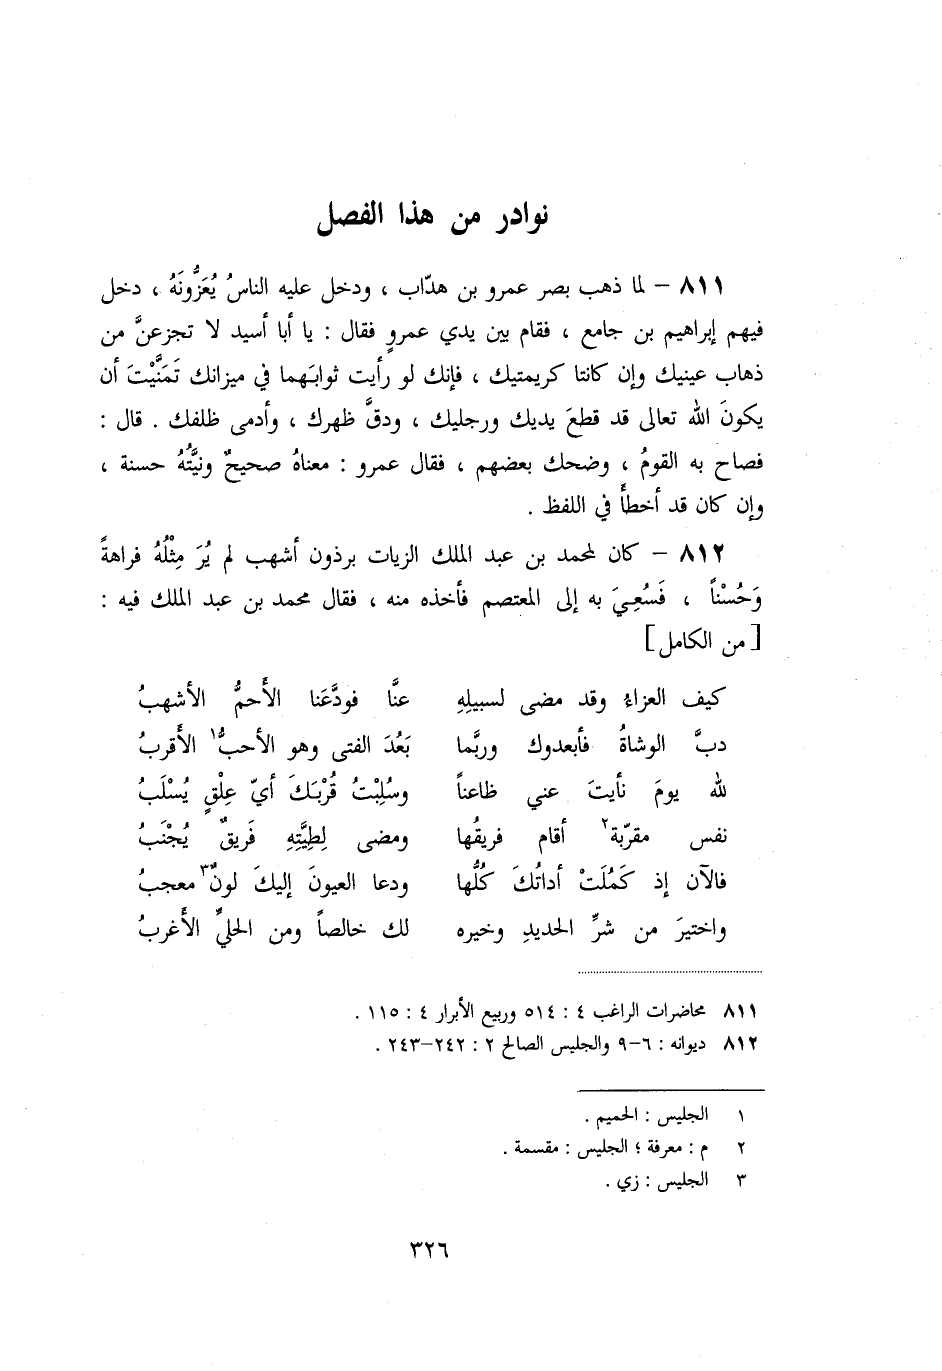 نوادر من هذا الفصل
٨١١ – لما ذهب بصر عمرو بن هدّاب ، ودخل عليه الناسُ يُعَزُّونَهُ ، دخل
فيهم إبراهيم بن جامع ، فقام بين يدي عمروٍ فقال : يا أبا أسيد لا تجزعنَّ من
ذهاب عينيك وإن كانتا كريمتيك ، فإنك لو رأيت ثوابَهما في ميزانك تَمَنَّيْتَ أن
يكونَ الله تعالى قد قطعَ يديك ورجليك ، ودقَّ ظهرك ، وأدمى ظلفك . قال :
فصاح به القومُ ، وضحك بعضهم ، فقال عمرو : معناهُ صحيحٌ ونيَّتُهُ حسنة ،
وإن كان قد أخطأَ في اللفظ .
٨١٢ – كان لمحمد بن عبد الملك الزيات برذون أشهب لم يُرَ مِثْلُهُ فراهةً
وَحُسْناً ، فَسُعِيَ به إلى المعتصم فأخذه منه ، فقال محمد بن عبد الملك فيه :
[من الكامل]
كيف العزاءُ وقد مضى لسبيلِهِ عنَّا فودَّعَنا الأَحمُّ الأشهبُ
دبَّ الوشاةُ فأبعدوك وربَّما بَعُدَ الفتى وهو الأحبُّ١ الأَقربُ
لله يومَ نأيتَ عني ظاعناً وسُلِبْتُ قُرْبَكَ أيّ عِلْقٍ يُسْلَبُ
نفس مقرّبة٢ أقام فريقُها ومضى لِطِيَّتِهِ فَريقٌ يُجْنَبُ
فالآن إذ كَمُلَتْ أداتُكَ كُلُّها ودعا العيونَ إليكَ لونٌ٣ معجبُ
واختيرَ من شرِّ الحديدِ وخيره لك خالصاً ومن الحليِّ الأَغربُ
٨١١ محاضرات الراغب ٤ : ٥١٤ وربيع الأبرار ٤ : ١١٥ .
٨١٢ ديوانه : ٦–٩ والجليس الصالح ٢ : ٢٤٢–٢٤٣ .
١ الجليس : الحميم .
٢ م : معرفة ؛ الجليس : مقسمة .
٣ الجليس : زي .
٣٢٦